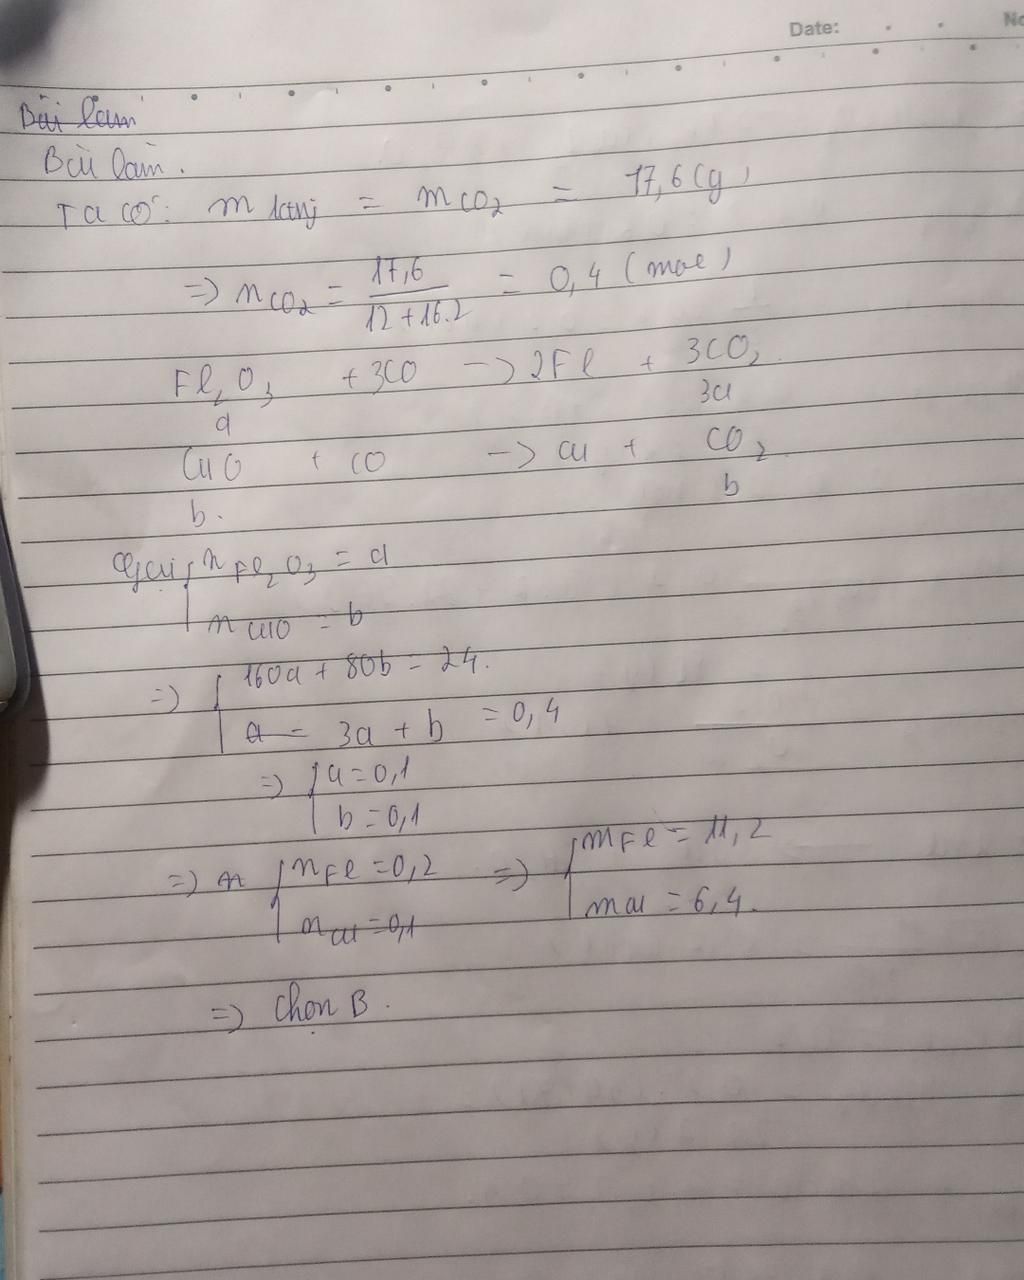 Date: No
Bài làm
Bài làm.
Ta có: m ktủa = mCO2 = 17,6 (g)
=> nCO2 = 17,6 / 12 + 16.2 = 0,4 (mol)
Fe2O3 + 3CO -> 2Fe + 3CO2
a 3a
CuO + CO -> Cu + CO2
b. b
Gọi { nFe2O3 = a
nCuO = b
=> { 160a + 80b = 24.
a = 3a + b = 0,4
=> { a = 0,1
b = 0,1
=> n { nFe = 0,2 => { mFe = 11,2
nCu = 0,1 mCu = 6,4.
=> Chọn B.